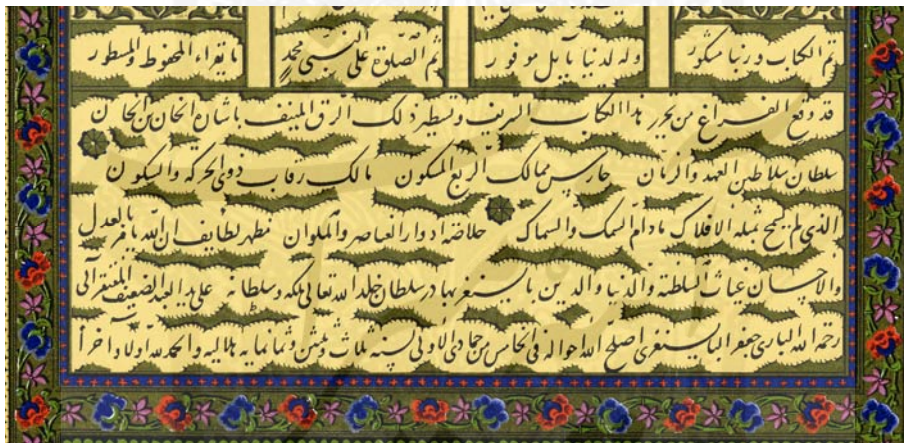 تم الکتاب و ربنا مشکور وله لدنیا نایل موفور ثم الصلوة علی النبی محمد ما یقراء المخطوط و المسطور
قد وقع الفراغ من تحریر هذا الکتاب الشریف و تسطیر ذلک الرق المنیف باشان الخان بن الخان
سلطان سلاطین العهد و الزمان حارس ممالک الربع المسکون مالک رقاب ذوی الحرکه و السکون
الذی لم یسمح بمثله الافلاک مادام السمک و السماک خلاصة ادوار العناصر و الملوان مظهر لطایف ان الله یامر بالعدل
والاحسان غیاث السلطنة والدنیا والدین بایسنغر بهادر سلطان خلد الله تعالی ملکه و سلطانه علی ید العبد الضعیف المفتقر الی
رحمة الله الباری جعفر البایسنغری اصلح الله احواله فی الخامس من جمادی الاولی لسنه ثلاث و ثلثین و ثمانمایه هلالیه والحمد لله اولا و آخرا